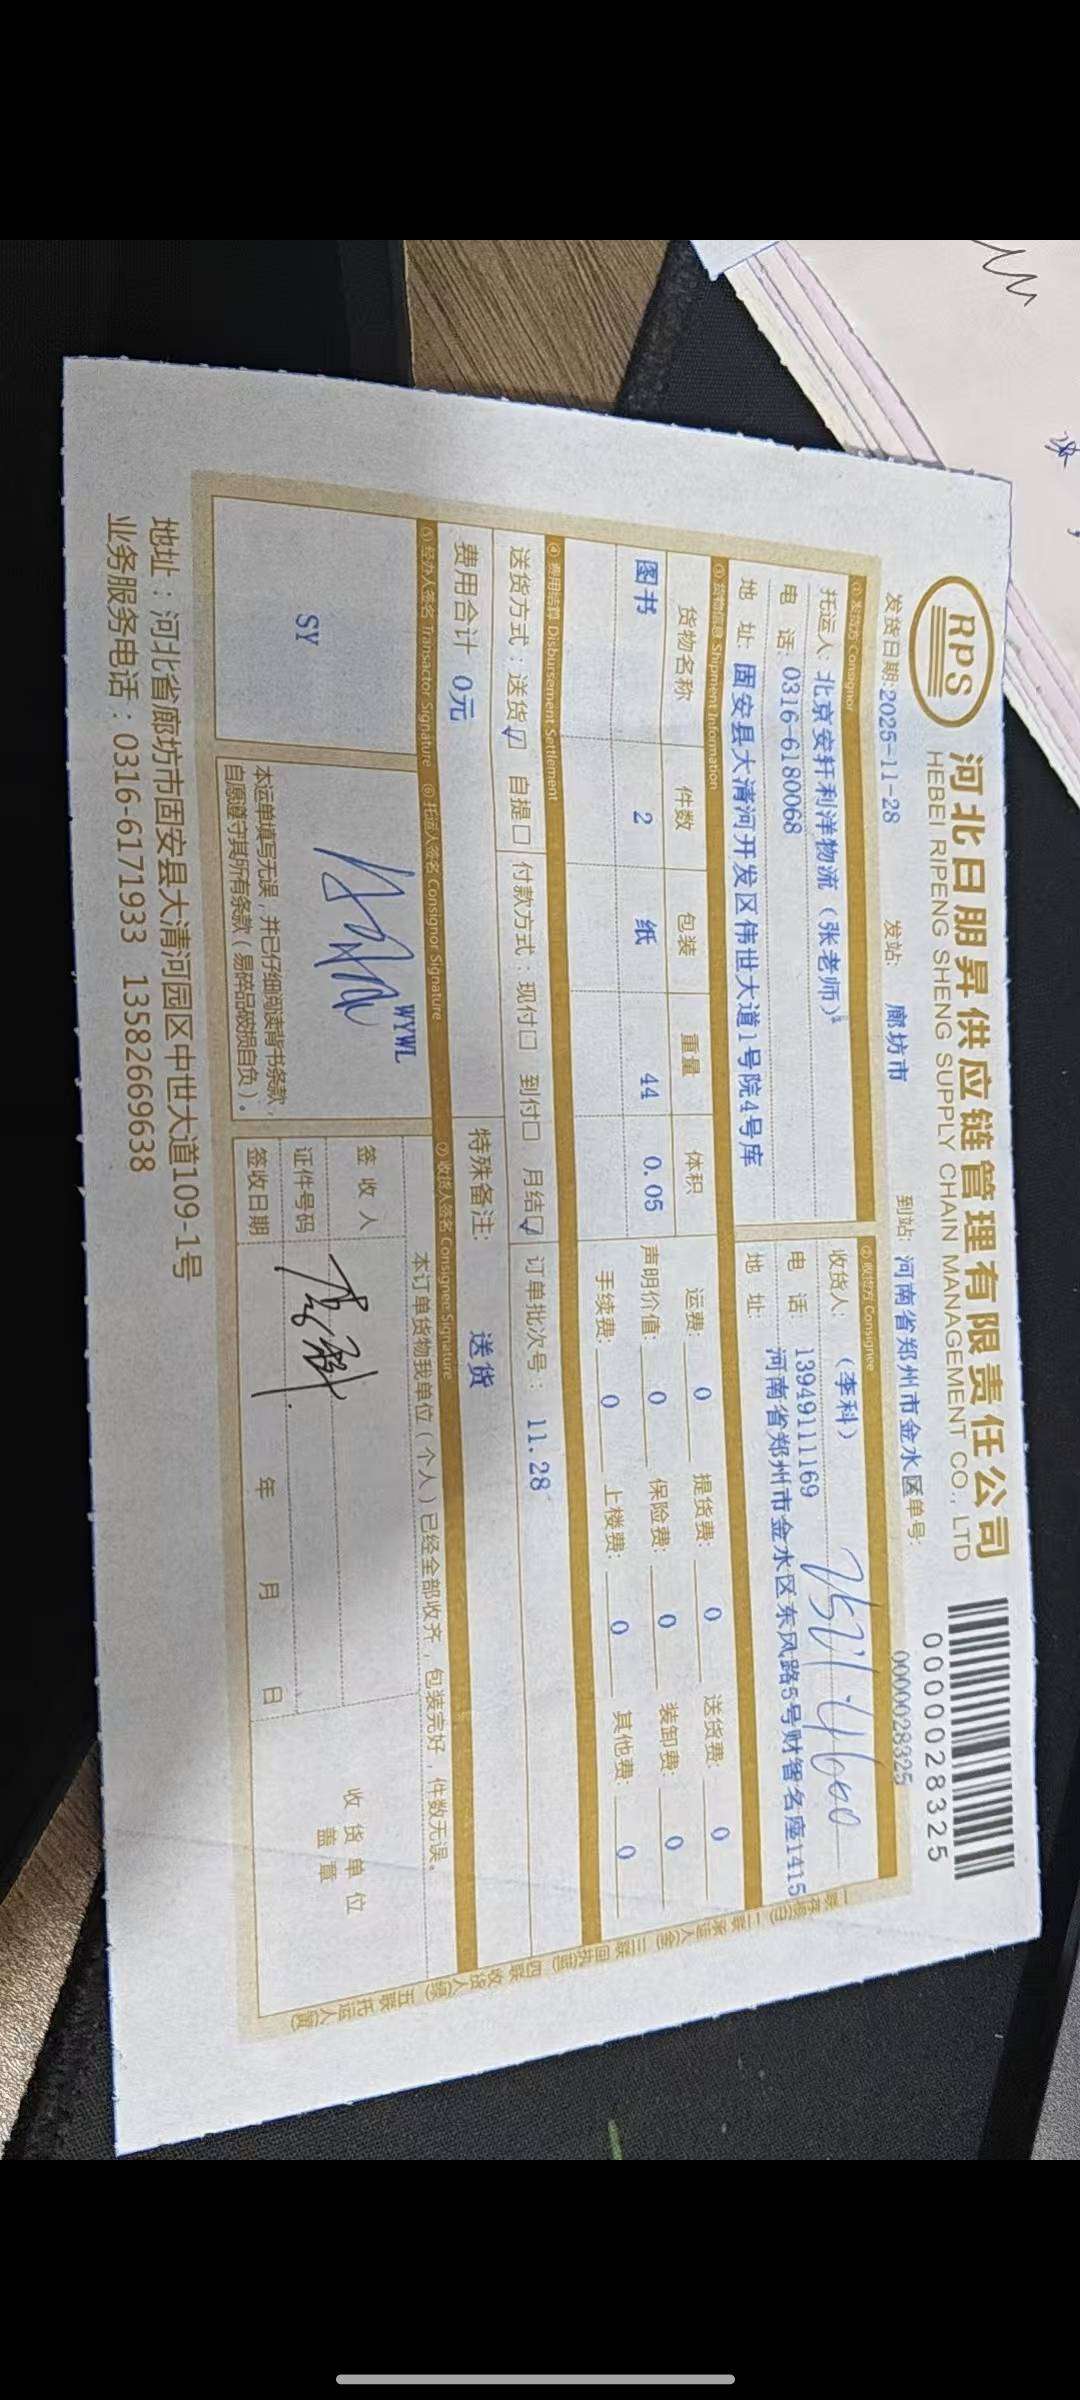 RPS
河北日朋昇供应链管理有限责任公司
HEBEI RIPENG SHENG SUPPLY CHAIN MANAGEMENT CO., LTD
0000028325
发货日期:2025-11-28 发站: 廊坊市 到站: 河南省郑州市金水区 单号: 0000028325
①发货方 Consignor
托运人: 北京安轩利洋物流（张老师）
电 话: 0316-6180068
地 址: 固安县大清河开发区伟世大道1号院4号库
②收货方 Consignee
收货人: （李科）
电 话: 13949111169
地 址: 河南省郑州市金水区东风路5号财智名座1415
③货物信息 Shipment Information
货物名称 件数 包装 重量 体积
图书 2 纸 44 0.05
运费: 0 提货费: 0 送货费: 0
声明价值: 0 保险费: 0 装卸费: 0
手续费: 0 上楼费: 0 其他费: 0
④费用结算 Disbursement Settlement
送货方式：送货☑ 自提□ 付款方式：现付□ 到付□ 月结☑ 订单批次号： 11.28
费用合计 0元 特殊备注: 送货
⑤经办人签名 Transactor Signature ⑥托运人签名 Consignor Signature ⑦收货人签名 Consignee Signature
SY
WYWL
本运单填写无误，并已仔细阅读背书条款，
自愿遵守其所有条款（易碎品破损自负）。
本订单货物我单位（个人）已经全部收齐，包装完好，件数无误。
签 收 人
证件号码
签收日期 年 月 日
收 货 单 位
盖 章
地址：河北省廊坊市固安县大清河园区中世大道109-1号
业务服务电话：0316-6171933 13582669638